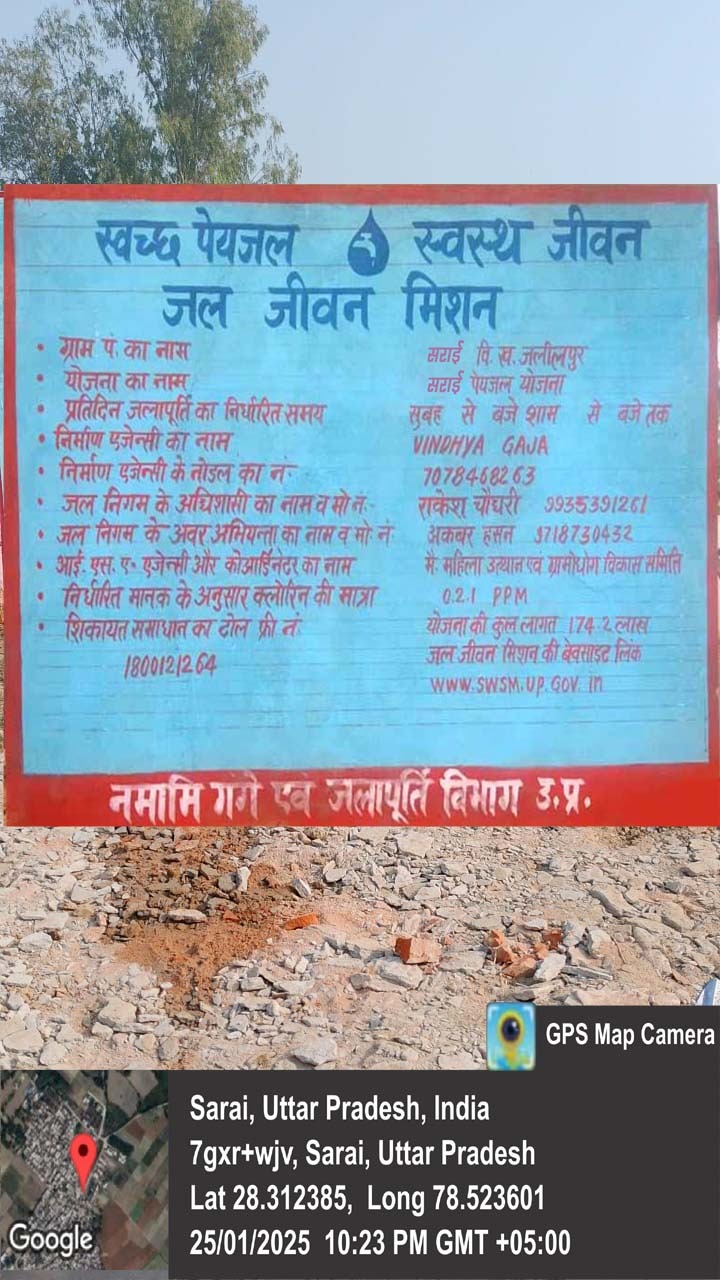 स्वच्छ पेयजल स्वस्थ जीवन
जल जीवन मिशन
• ग्राम पं. का नाम सराई वि.ख. जलीलपुर
• योजना का नाम सराई पेयजल योजना
• प्रतिदिन जलापूर्ति का निर्धारित समय सुबह से बजे शाम से बजे तक
• निर्माण एजेन्सी का नाम VINDHYA GAJA
• निर्माण एजेन्सी के नोडल का नं. 7078468263
• जल निगम के अधिशासी का नाम व मो नं. राकेश चौधरी 9935391261
• जल निगम के अवर अभियन्ता का नाम व मो. नं. अकबर हसन 9718730432
• आई. एस. ए. एजेन्सी और कोआर्डिनेटर का नाम मै. महिला उत्थान एवं ग्रामोधोग विकास समिति
• निर्धारित मानक के अनुसार क्लोरिन की मात्रा 0.2.1 PPM
• शिकायत समाधान का टोल फ्री नं. योजना की कुल लागत 174.2 लाख
1800121264 जल जीवन मिशन की बेवसाइट लिंक
www.swsm.up.gov.in
नमामि गंगे एवं जलापूर्ति विभाग उ.प्र.
GPS Map Camera
Sarai, Uttar Pradesh, India
7gxr+wjv, Sarai, Uttar Pradesh
Lat 28.312385, Long 78.523601
25/01/2025 10:23 PM GMT +05:00
Google